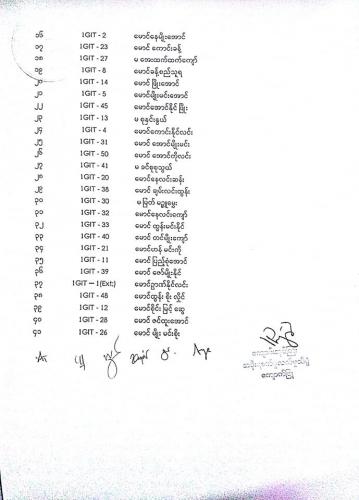 ၁၆ 1GIT - 2 မောင်နေမျိုးအောင်
၁၇ 1GIT - 23 မောင် ကောင်းခန့်
၁၈ 1GIT - 27 မ အေးထက်ထက်ကျော်
၁၉ 1GIT - 8 မောင်ခန့်စည်သူရ
၂၀ 1GIT - 14 မောင် ဖြိုးအောင်
၂၁ 1GIT - 5 မောင်မျိုးမင်းအောင်
၂၂ 1GIT - 45 မောင်အောင်နိုင် ဖြိုး
၂၃ 1GIT - 13 မ စုနှင်းနွယ်
၂၄ 1GIT - 4 မောင်ကောင်းနိုင်လင်း
၂၅ 1GIT - 31 မောင် အောင်မျိုးမင်း
၂၆ 1GIT - 50 မောင် အောင်ကိုလင်း
၂၇ 1GIT - 41 မ ခင်စုစုသွယ်
၂၈ 1GIT - 20 မောင်နေလင်းဆန်း
၂၉ 1GIT - 38 မောင် ချမ်းလင်းထွန်း
၃၀ 1GIT - 30 မ မြတ် မဥ္ဇူမွှေး
၃၁ 1GIT - 32 မောင်နေလင်းကျော်
၃၂ 1GIT - 33 မောင် ထွန်းမင်းနိုင်
၃၃ 1GIT - 40 မောင် တင်မျိုးကျော်
၃၄ 1GIT - 21 မောင်ဟန် မင်းကို
၃၅ 1GIT - 11 မောင် ပြည့်စုံအောင်
၃၆ 1GIT - 39 မောင် ဇော်မျိုးနိုင်
၃၇ 1GIT – 1(Ext:) မောင်ဉာဏ်နိုင်လင်း
၃၈ 1GIT - 48 မောင်ထွန်း စိုး လှိုင်
၃၉ 1GIT - 12 မောင်စိုင်း မြင့် ဆွေ
၄၀ 1GIT - 28 မောင် ဇင်ထူးအောင်
၄၁ 1GIT - 26 မောင် မျိုး မင်းစိုး